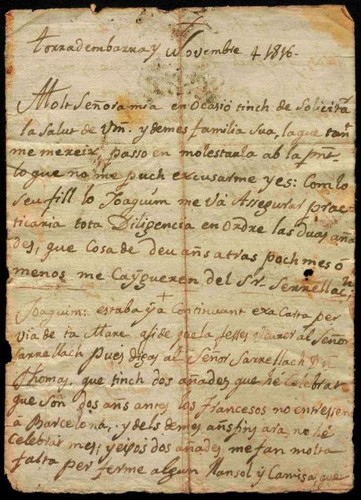 Torradembarra y Novembre 4 1816.
Molt Señora mia en Ocasio tinch de Solicitá
la Salut de Vm. y demes familia Sua, la que tan
me mereix, passo en molestarla ab la pnt.
lo que no me puch excusarme y es: Com lo
Seu fill lo Joaquim me vá Assegurar prac-
ticaria tota Diligencia en Ordre las duas aña-
des, que Cosa de deu añs atras poch mes ó
menos me Caygueren del Sr. Serrellach,
Joaquim: estaba ya Continuant exa Carta per
via de ta Mare afi de que la fesses saver al Señor
Sarrellach pues digas al Señor Sarrellach
Thomas, que tinch dos añades que he Celebrat
que Son dos añs antes los Francesos no entressen
á Barcelona, y dels demes añs fins ara, no hé
Celebrar mes; y eixos dos añades me fan molta
falta per ferme algun Llansol y Camisa, que